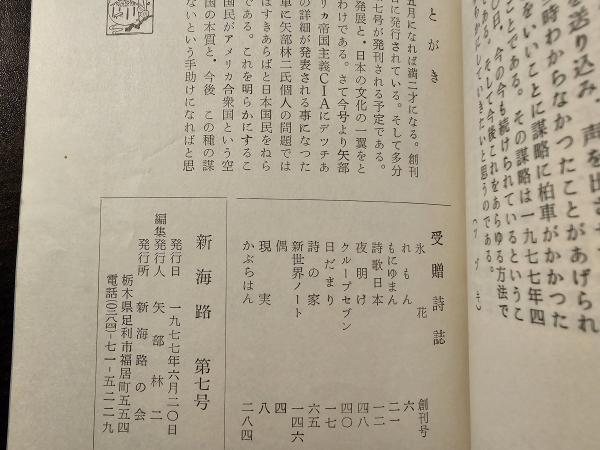 を送り込み、声を出させ
時わからなかつたことがあげられ
をいいことに謀略に拍車がかかつた
ことである。その謀略は一九七七年四
〇日、今の今も続けられているというこ
である。そして今後これをあらゆる方法で
かにしていきたいと思うのである。
(つづき)
とがき
五月になれば満二才になる。創刊
に発行されている。そして多分
七号が発刊される予定である。
発展と、日本の文化の一翼をと
わけである。さて今号より矢部
リカ帝国主義CIAにデツチあ
の詳細が発表される事になつた
単に矢部林二氏個人の問題では
はすきあらばと日本国民をねら
である。これを明らかにするこ
国民がアメリカ合衆国という空
国の本質と、今後、この種の謀
ないという手助けになればと思
受贈詩誌
氷花 創刊号
れもん 六
もにゆまん 二一
詩歌日本 一二
夜明け 四八
クループセブン 四〇
日だまり 一七
詩の家 六五
新世界ノート 一四六
偶 四
現実 八
かぶらはん 二八四
新海路 第七号
発行日 一九七七年六月二〇日
編集発行人 矢部林二
発行所 新海路の会
栃木県足利市福居町五五四
電話(〇二八四-七一-五二二九